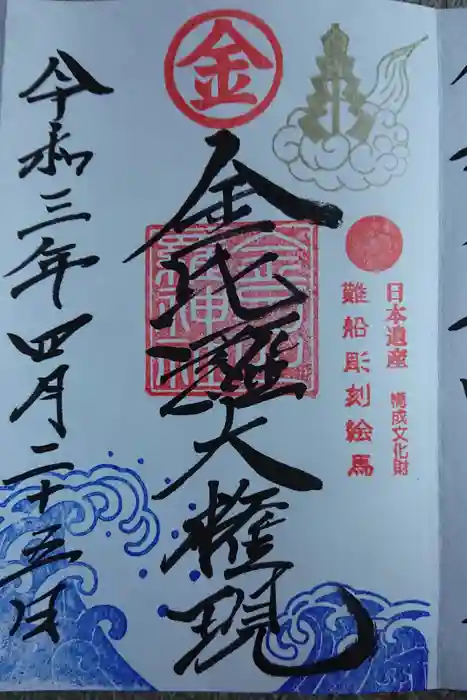 金
日本遺産 構成文化財
難船彫刻絵馬
金毘羅大権現
令和三年四月二十五日